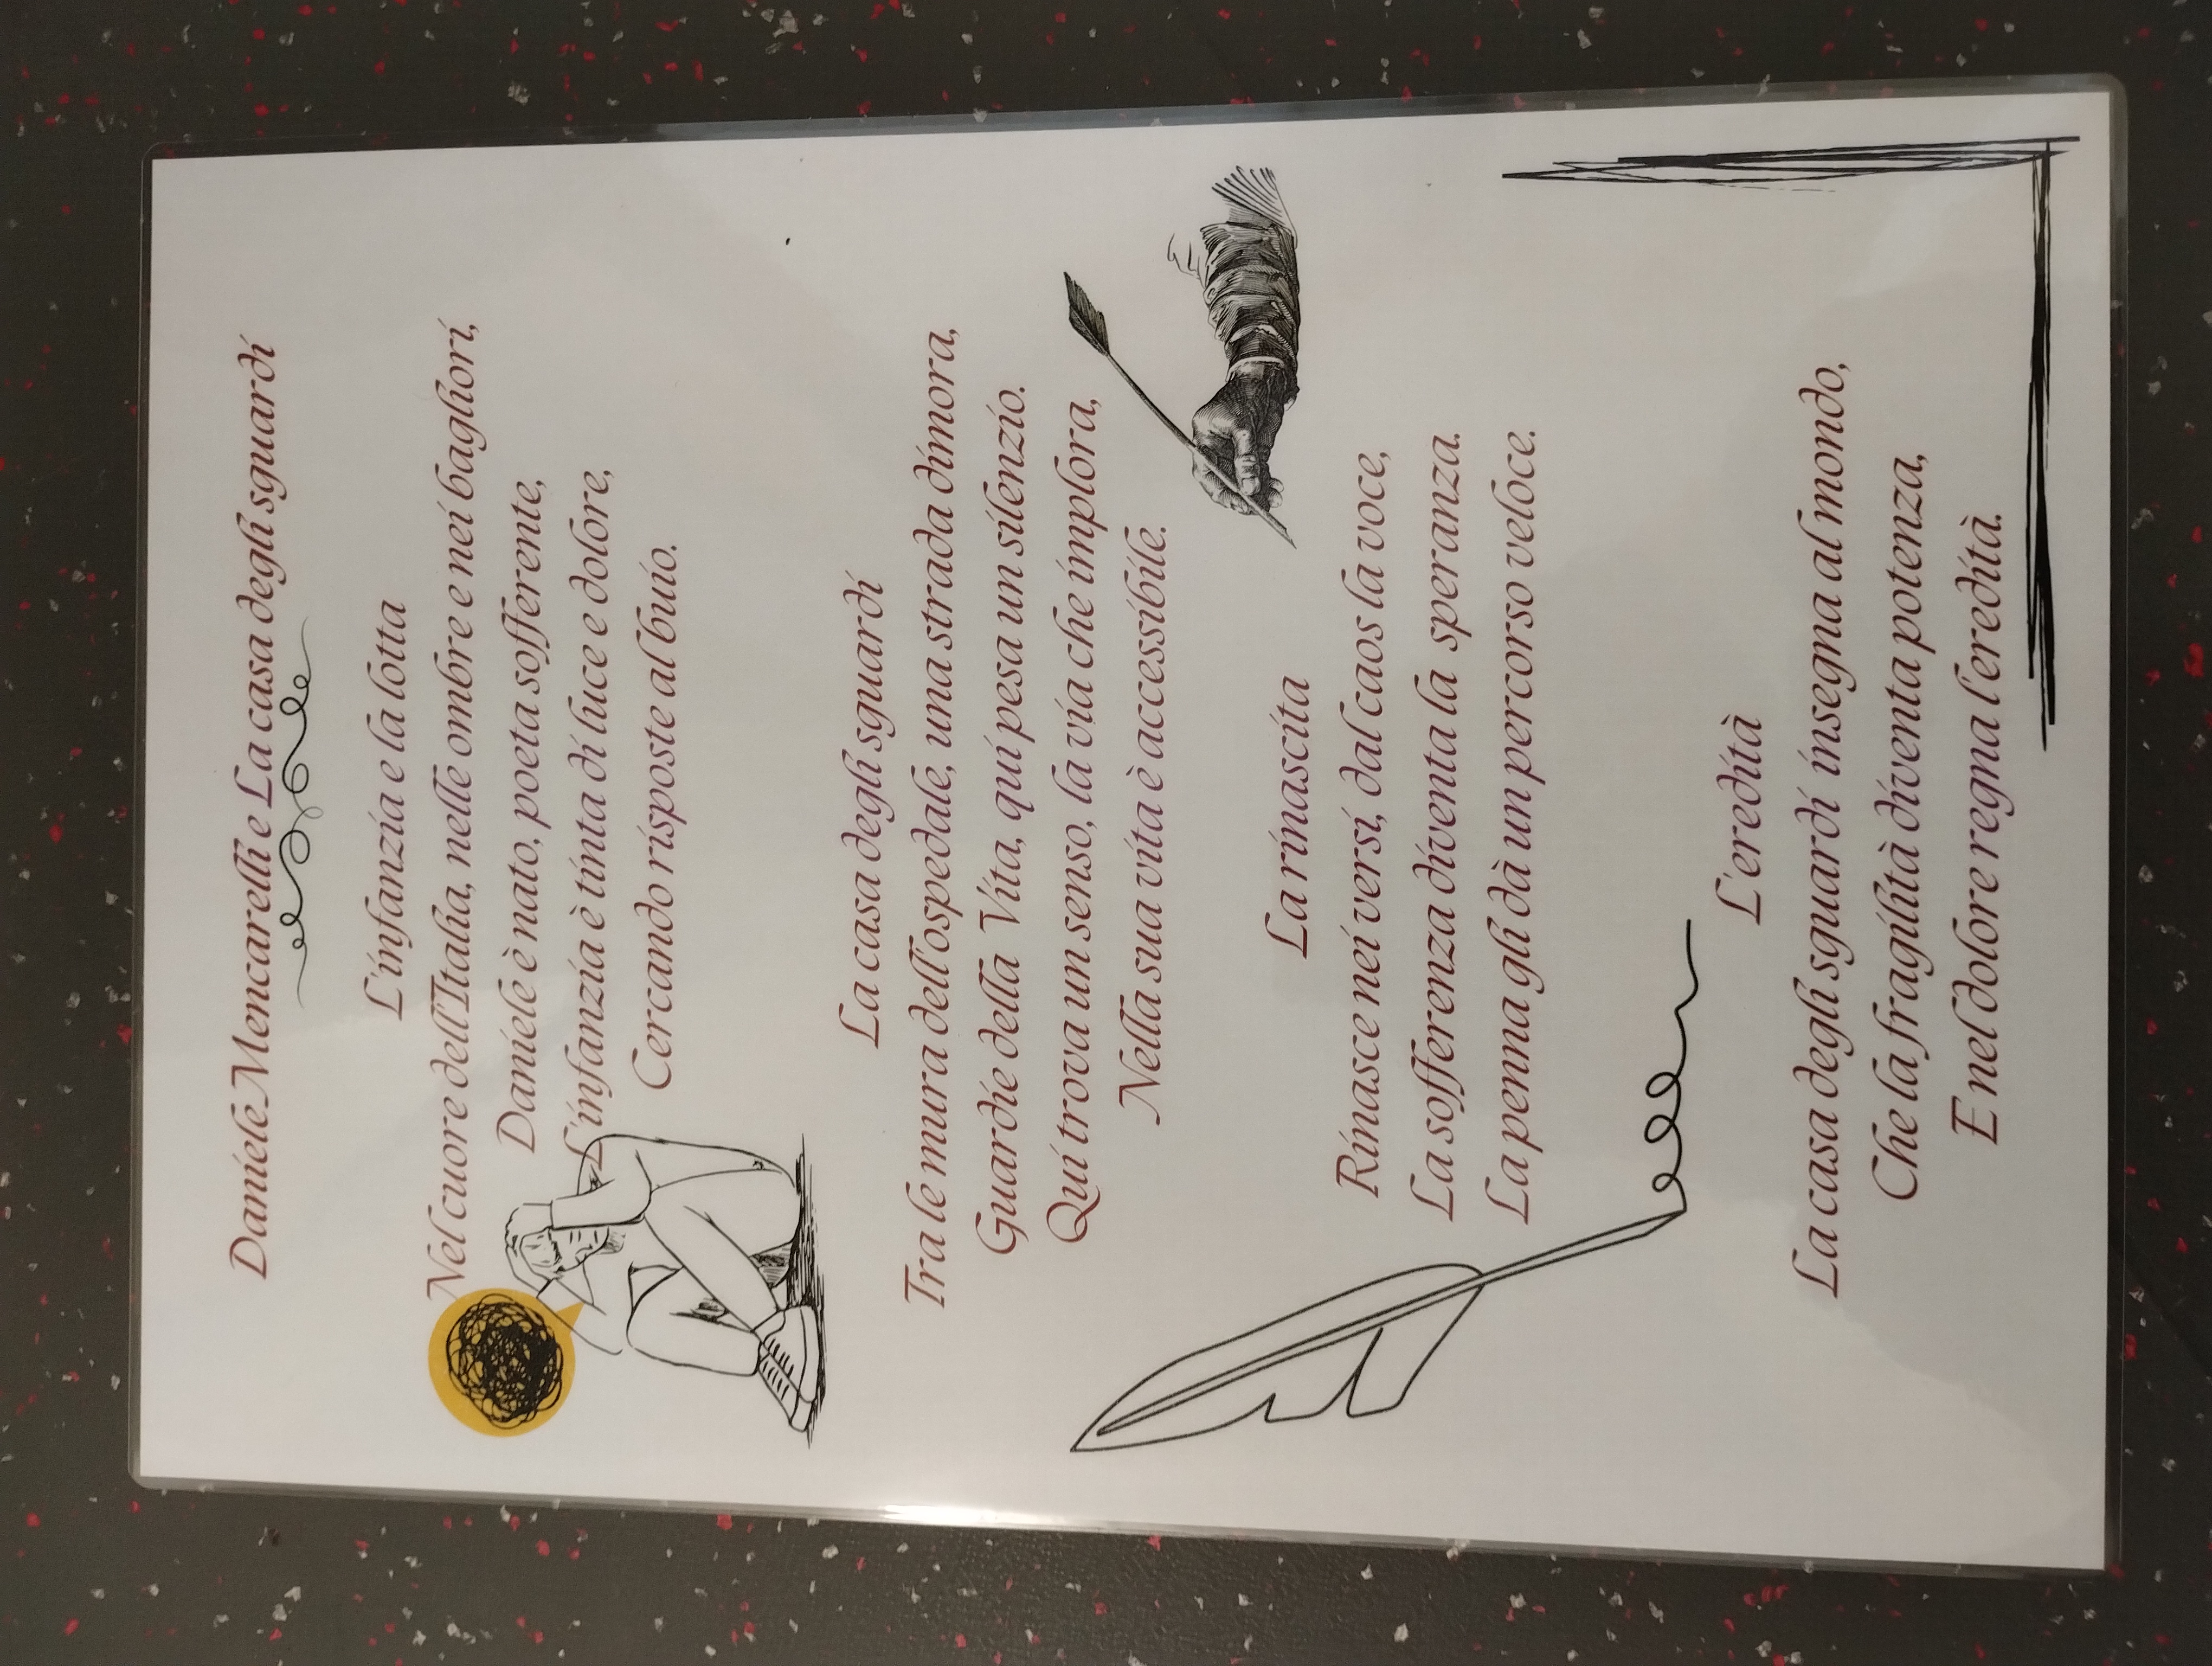 Daniele Mencarelli e La casa degli sguardi
L'infanzia e la lotta
Nel cuore dell'Italia, nelle ombre e nei bagliori,
Daniele è nato, poeta sofferente,
L'infanzia è tinta di luce e dolore,
Cercando risposte al buio.
La casa degli sguardi
Tra le mura dell'ospedale, una strada dimora,
Guardie della Vita, qui pesa un silenzio.
Qui trova un senso, la via che implora,
Nella sua vita è accessibile.
La rinascita
Rinasce nei versi, dal caos la voce,
La sofferenza diventa la speranza.
La penna gli dà un percorso veloce.
L'eredità
La casa degli sguardi insegna al mondo,
Che la fragilità diventa potenza,
E nel dolore regna l'eredità.